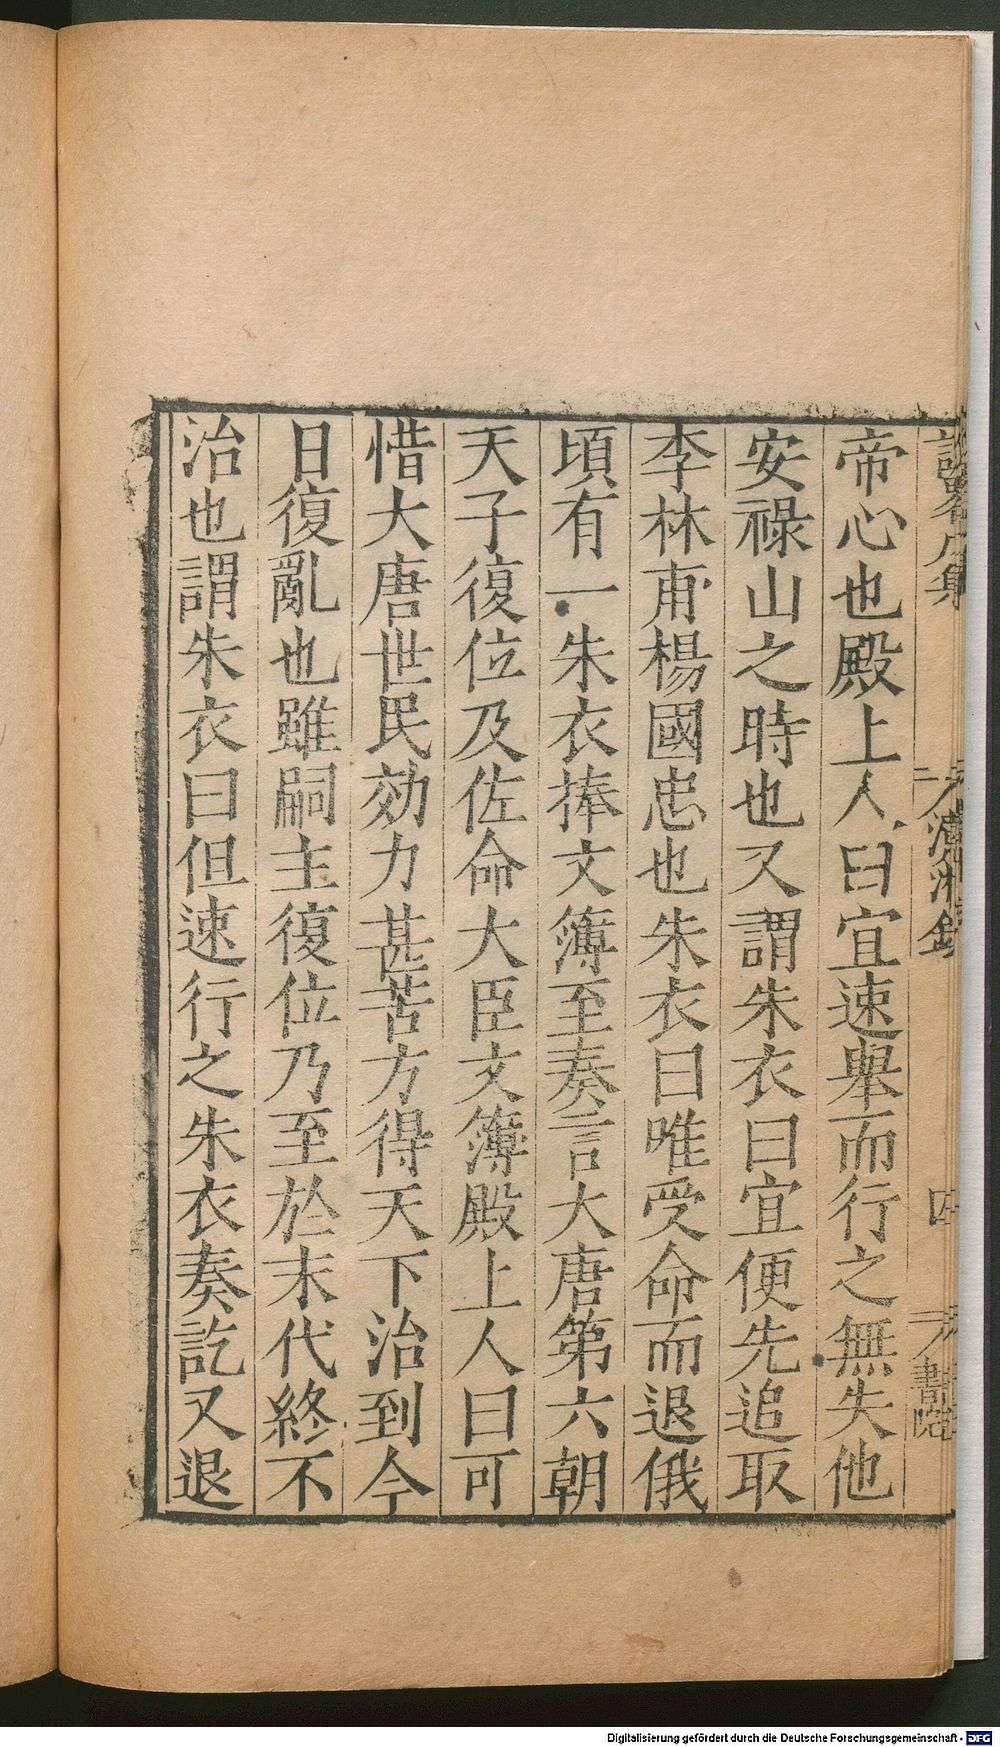 帝心也殿上人曰宜速舉而行之無失他
安祿山之時也又謂朱衣曰宜便先追取
李林甫楊國忠也朱衣曰唯受命而退俄
頃有一朱衣捧文簿至奏言大唐第六朝
天子復位及佐命大臣文簿殿上人曰可
惜大唐世民効力甚苦方得天下治到今
日復亂也雖嗣主復位乃至於末代終不
治也謂朱衣曰但速行之朱衣奏訖又退
Digitalisierung gefördert durch die Deutsche Forschungsgemeinschaft - DFG